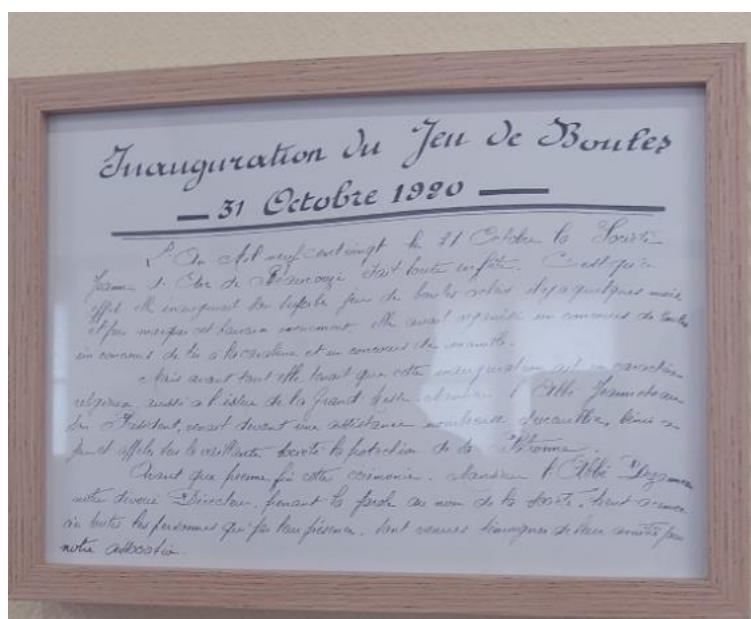 Inauguration du Jeu de Boules
31 Octobre 1920
L'An Mil neuf cent vingt le 31 Octobre la Société
Jeanne d'Arc de Beaucouzé était toute en fête. C'est qu'en
effet elle inaugurait son superbe jeu de boules refait il y a quelques mois
et pour marquer cet heureux évènement elle avait organisé un concours de boules
un concours de tir à la carabine et un concours de manille.
Mais avant tout elle tenait que cette inauguration ait un caractère
religieux aussi à l'issue de la Grand Messe Monsieur l'Abbé
son Président, venait devant une assistance nombreuse et recueillie, bénir ce
jeu et appeler sur la vaillante Société la protection de la Patronne.
Avant que prenne fin cette cérémonie, Monsieur l'Abbé
notre dévoué Directeur, prenant la parole au nom de la Société, tient à remer
cier toutes les personnes qui par leur présence, sont venues témoigner de leur amitié pour
notre association.